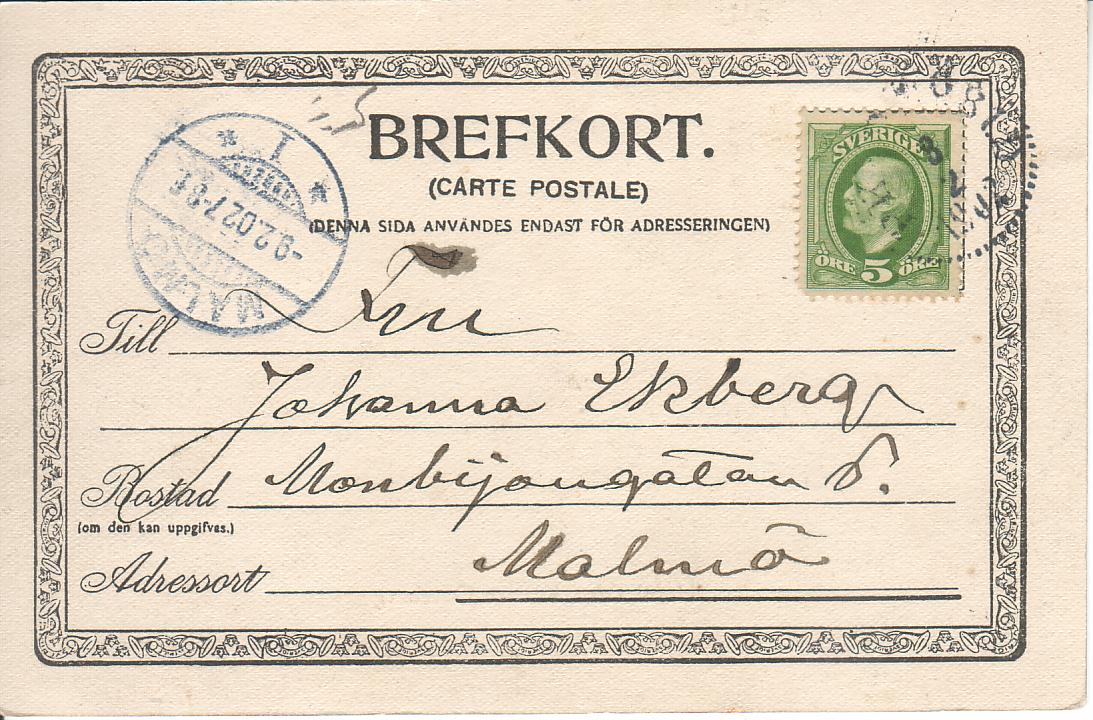 BREFKORT.
(CARTE POSTALE)
(DENNA SIDA ANVÄNDES ENDAST FÖR ADRESSERINGEN)
SVERIGE
ÖRE 5 ÖRE
MALMÖ
1
-9.2.02.7-9 F
Till Fru
Johanna Ekberg
Bostad Monbijougatan 8.
(om den kan uppgifvas.)
Adressort Malmö